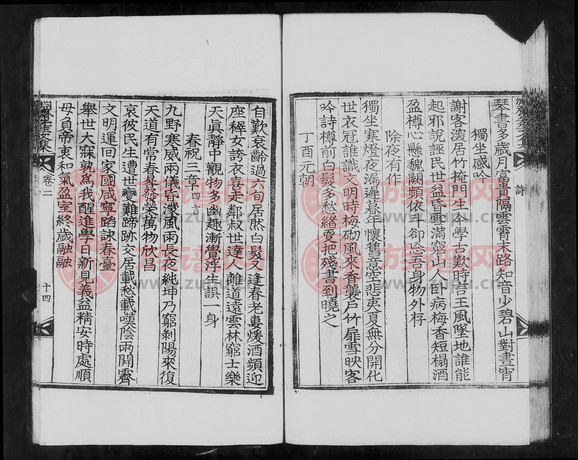 琴書多歲月富貴隔雲霄末路知音少碧山對晝宵
獨坐感吟
謝客深居竹掩門生今學古歎時王風墜地誰能
起邪說誣民世益昏雪滿窮山人臥病梅香短榻酒
盈樽心懸魏闕頻依斗卻忘吾身物外存
除夜有作
獨坐寒燈夜漏遲暮年懷舊意空悲東夏無分開化
世衣冠誰識文明時梅砌風來香襲戶竹扉雪映客
吟詩樽前白髮多愁緒更把殘書到曉之
丁酉元朝
自歎衰齡過六旬居然白髮又逢春老妻煖酒頻迎
座穉女誇衣喜走鄰叔世達人離道遠雲林窮士樂
天眞靜中觀物多幽趣漸覺浮生誤一身
春祝二章
九野寒威兩儀昏濛風雨長夜純坤乃窮剝陽來復
天道有常春鼓發榮萬物欣昌
哀彼民生遭世變難蹄跡交居載愁載嘆陰雨開霽
文明運回家國咸寧謌詠春臺
擧世人寐孰爲我醒進學日新見義益精安時處順
母負帝衷和氣盈室終歲融融
卷二
十四
詩